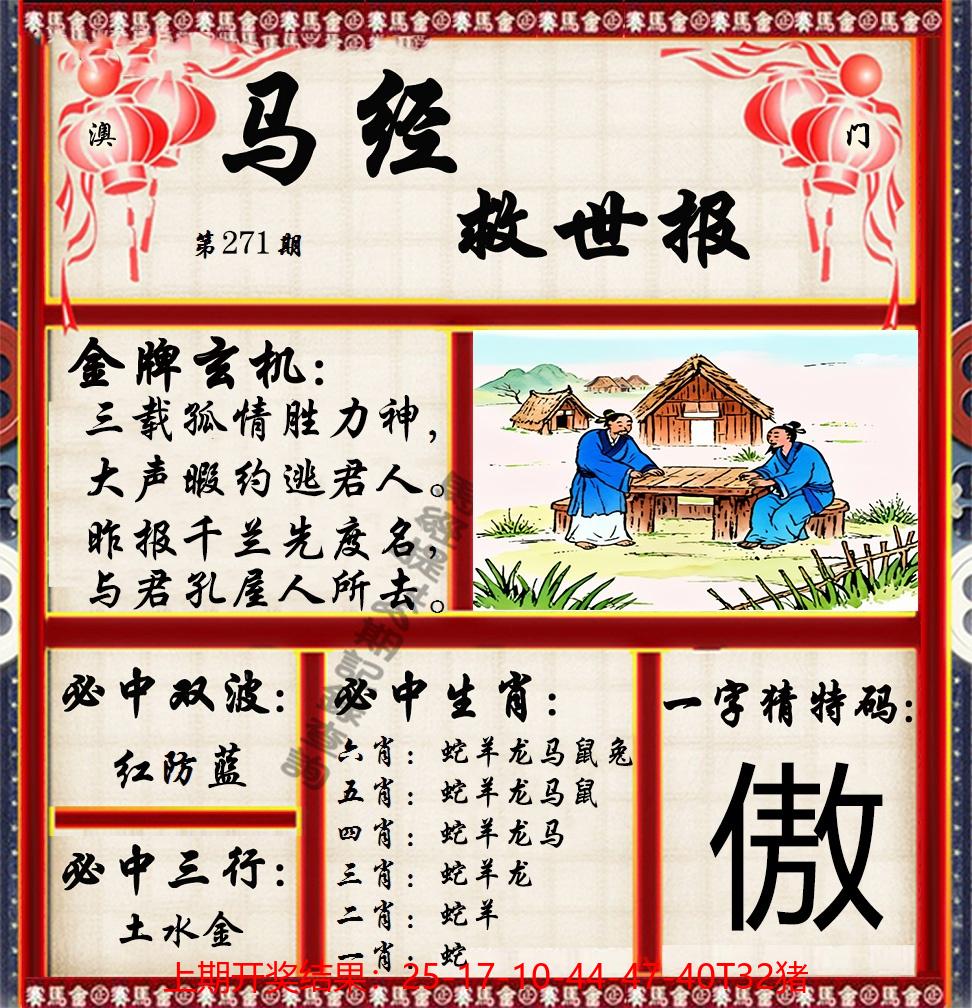 澳
门
马经
救世报
第271期
金牌玄机:
三载孤情胜力神,
大声暇约逃君人。
昨报千兰先度名,
与君孔屋人所去。
必中双波:
红防蓝
必中三行:
土水金
必中生肖:
六肖:蛇羊龙马鼠兔
五肖:蛇羊龙马鼠
四肖:蛇羊龙马
三肖:蛇羊龙
二肖:蛇羊
一肖:蛇
一字猜特码:
傲
上期开奖结果:25-17-10-44-47-40T32猪